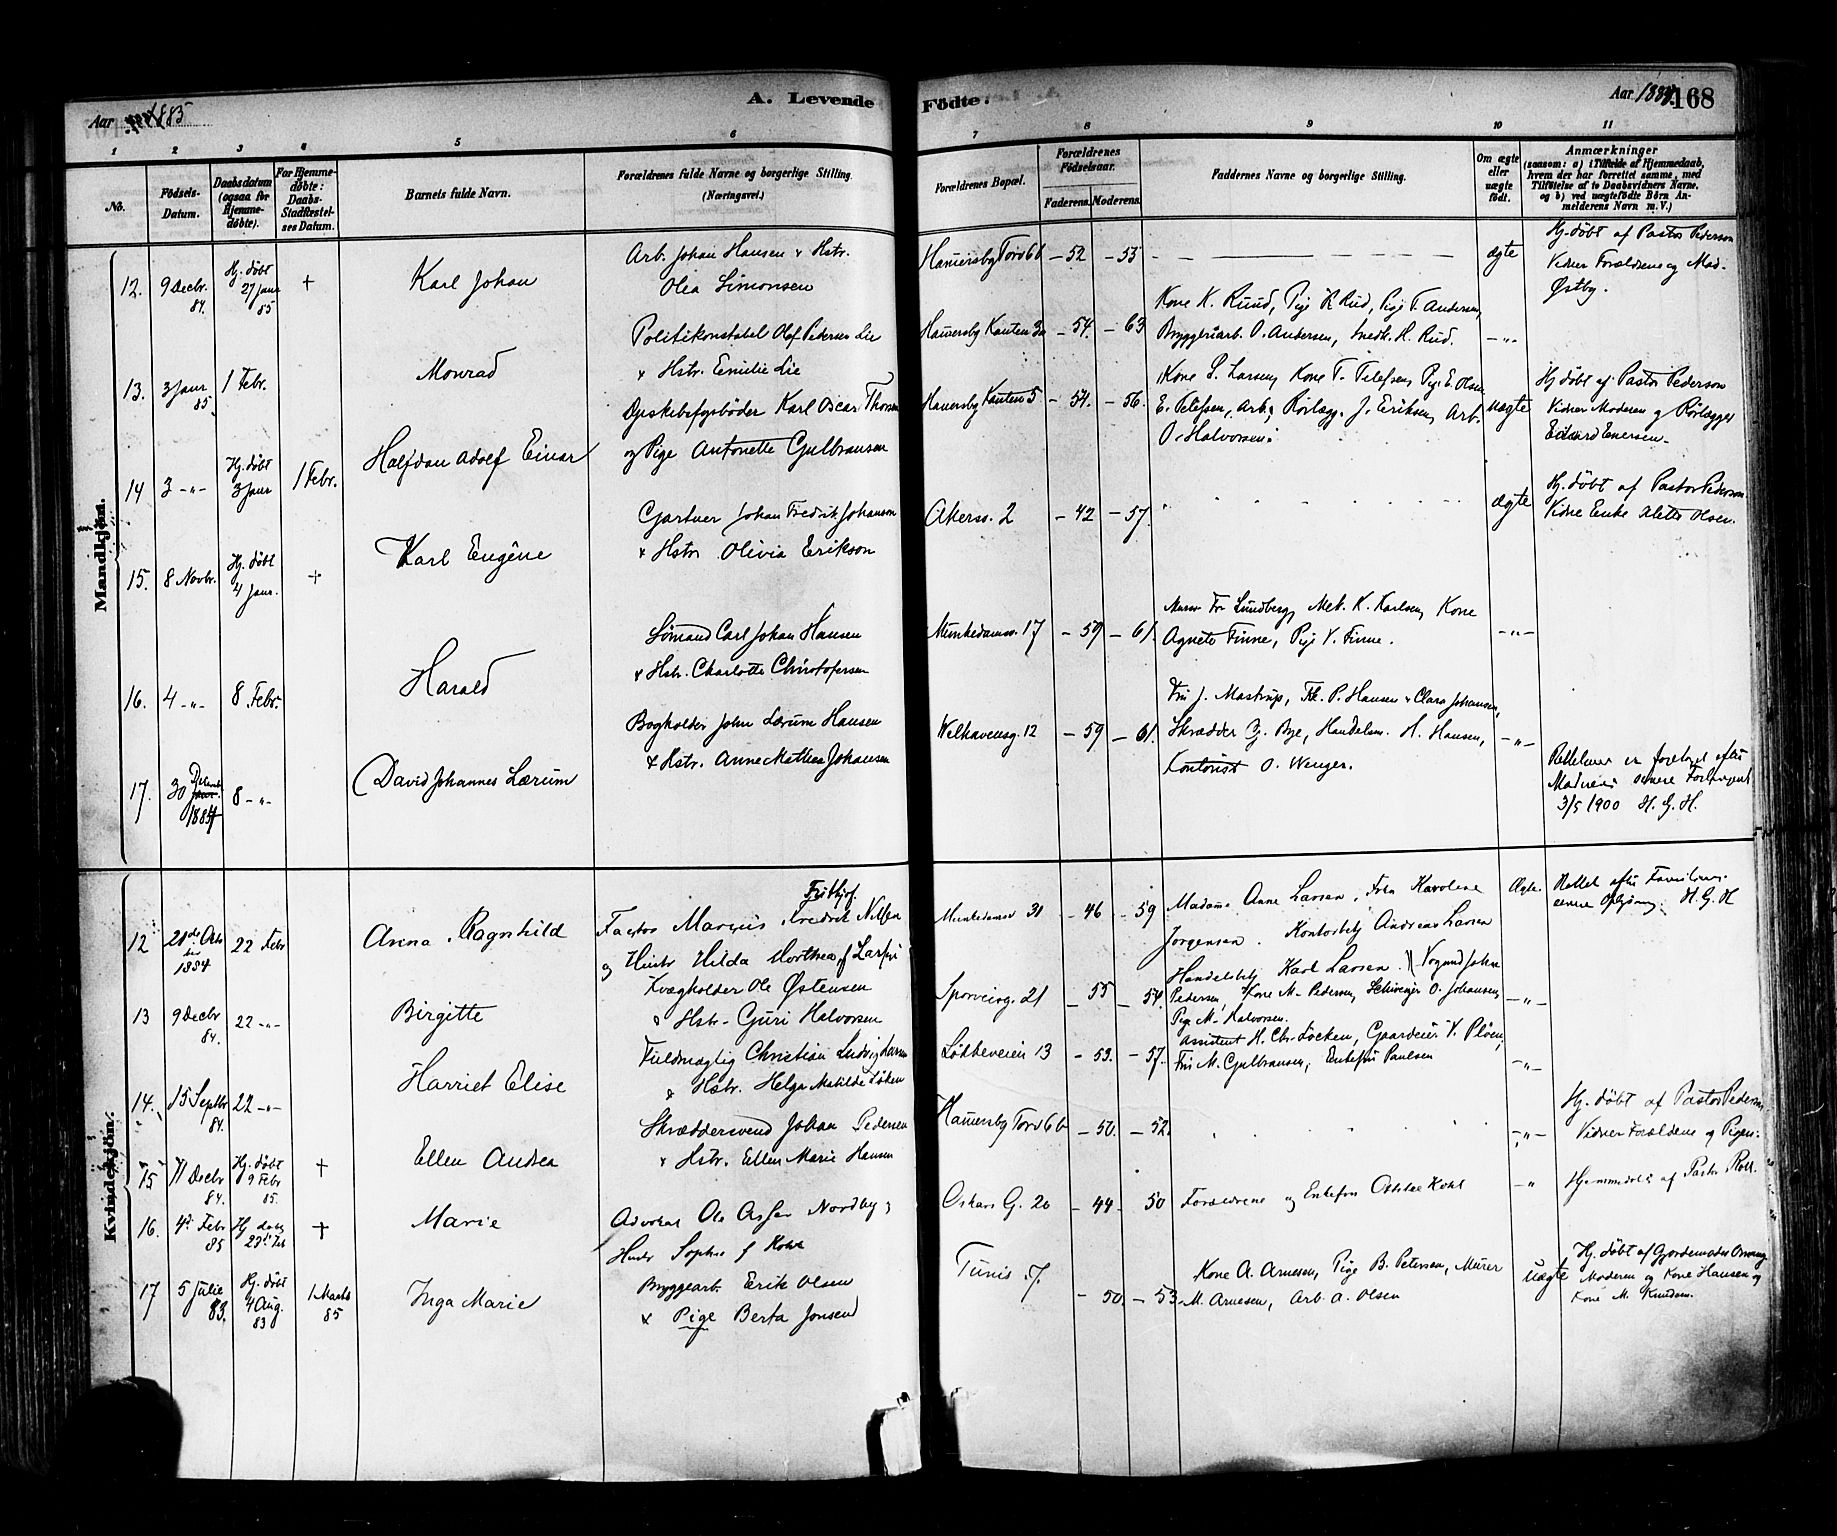 Aar 1885
A. Levende
Födte.
Aar 1885.
168
1 2 3 4 5 6 7 8 9 10 11
No.
Födsels-
Datum.
Daabsdatum
(ogsaa for
Hjemme-
döbte).
For Hjemme-
döbte:
Daabs-
Stadfæstel-
ses Datum.
Barnets fulde Navn.
Forældrenes fulde Navne og borgerlige Stilling.
(Næringsvei.)
Forældrenes Bopæl.
Forældrenes
Födselsaar.
Faderens. Moderens.
Faddernes Navne og borgerlige Stilling.
Om ægte
eller
uægte
födt.
Anmærkninger
(saasom: a) i Tilfælde af Hjemmedaab,
hvem der har forrettet samme, med
Tilföielse af to Daabsvidners Navne,
og b) ved uægtefödte Börn An-
melderens Navn m. V.)
Mandkjön.
12. 9 Decbr. 84. Hj. döbt 27 Janr 85 + Karl Johan
Arb. Johan Hansen & Hstr.
Olea Simonsen
Hamersby Torv 6b – 52 – 53 ægte
Hj. döbt af Pastor Pederson
Vidner Forældrene og Mad.
Østby.
13. 3 Janr 85. 1 Febr. Monrad
Politikonstabel Olaf Pedersen Lie
& Hstr. Emilie Lie
Hamersby Kanten 3a – 54. – 63 –„–
Kone K. Ruud, Pige R. Rud, Pige T. Andersen,
Bryggeriarb. O. Andersen, Snedk. H. Rud.
14 3 –„– Hj. döbt 3 Janr 1 Febr. Halfdan Adolf Einar
Karl Oscar Thorsen
og Pige Antonette Gulbransen
Hamersby Kanten 5 – 54. – 56. uægte
Kone S. Larsen, Kone T. Tilefsen, Pige E. Olsen
E. Tellefsen, Arb., Rörlægg. J. Eriksen, Arb.
O. Halvorsen.
Hj döbt af Pastor Pederson
Vidner Moderen og Rörlægger
Edvard Enersen.
15. 8 Novbr. Hj. döbt 4 Janr. + Karl Eugène
Gartner Johan Fredrik Johanson
& Hstr Olivia Erikson
Akersv. 2 – 42 – 57. ægte
Hj. döbt af Pastor Pederson
Vidne Enke Alette Olsen.
16. 4 –„– 8 Febr. Harald
Sömand Carl Johan Hansen
& Hstr. Charlotte Christofersen
Munkedamsv. 17 – 59 – 61. –„–
Fr Lundberg, K. Karlsen, Kone
Agnete Finne, Pige V. Finne.
17. 30 Decemb 1884 8 –„– David Johannes Lærum
Bogholder John Lærum Hansen
& Hstr. Anne Mathea Johansen
Welhavensg. 12 – 59 – 61. –„–
Fru J. Mastrup, Frk. P. Hansen & Clara Johansen,
Skrædder G. Bye, Handelsm. H. Hansen,
Kontorist O. Wenger.
Rettelser er foretaget efter
senere Forlangende
3/5 1900 H. G. H.
Kvindekjön.
12 22 Febr Anna Ragnhild
Frithjof
Faktor Marcus Fredrik Nilsen
og Hustr Hilda Morthea f Larsen
Munkedamsv 31 – 46 – 59 Ægte.
Madame Anne Larsen, Frøken Karoline
Jorgensen. Kontorbetj Andreas Larsen
Handelsbetj Karl Larsen.
Rettet efter Familiens
senere Oplysning. H. G. H
13 9 Decbr 84. 22 –„– Birgitte
Kvægholder Ole Østensen
& Hstr. Guri Halvorsen
Sporveisg. 21 – 55 – 54. –„–
Vognmd Johan
Pedersen, Kone M. Pedersen, O. Johansen,
Pige M. Halvorsen.
14. 15 Septbr 84. 22 –„– Harriet Elise
Fuldmægtig Christian Ludvig Larsen
& Hstr. Helga Matilde Løken
Lökkeveien 13 – 53. – 57. –„–
Assistent H. Chr. Löcken, Gaardeier V. Plöen,
Fru M. Gulbransen, Enkefru Paulsen
15 11 Decbr 84. Hj. döbt 9 Febr 85. + Ellen Andrea
Skræddersvend Johan Pedersen
& Hstr. Ellen Marie Hansen
Hamersby Torv 6b – 50. – 52. –„–
Hj. döbt af Pastor Pederson,
Vidner Forældrene og Pigen.
16. 4de Febr 85 Hj döbt 23de Feb + Marie
Advokat Ole Asser Nordby &
Hustr Sophie f Kohl
Oskars G. 20 – 44 – 50 –„
Forældrene og Enkefru Kohl
Hjemmedöbt af Pastor Roll.
17 5 Julie 83. Hj. döbt 4 Aug. 83 1 Marts 85 Inga Marie
Bryggearb. Erik Olsen
& Pige Berta Jonsen
Tunis 7. – 50. – 53 uægte
Kone A. Arnesen, Pige B. Petersen, Murer
M. Arnesen, Arb. A. Olsen
Hj. döbt af Gjordemoder
Moderen og Kone Hansen og
Kone M. Knudsen.